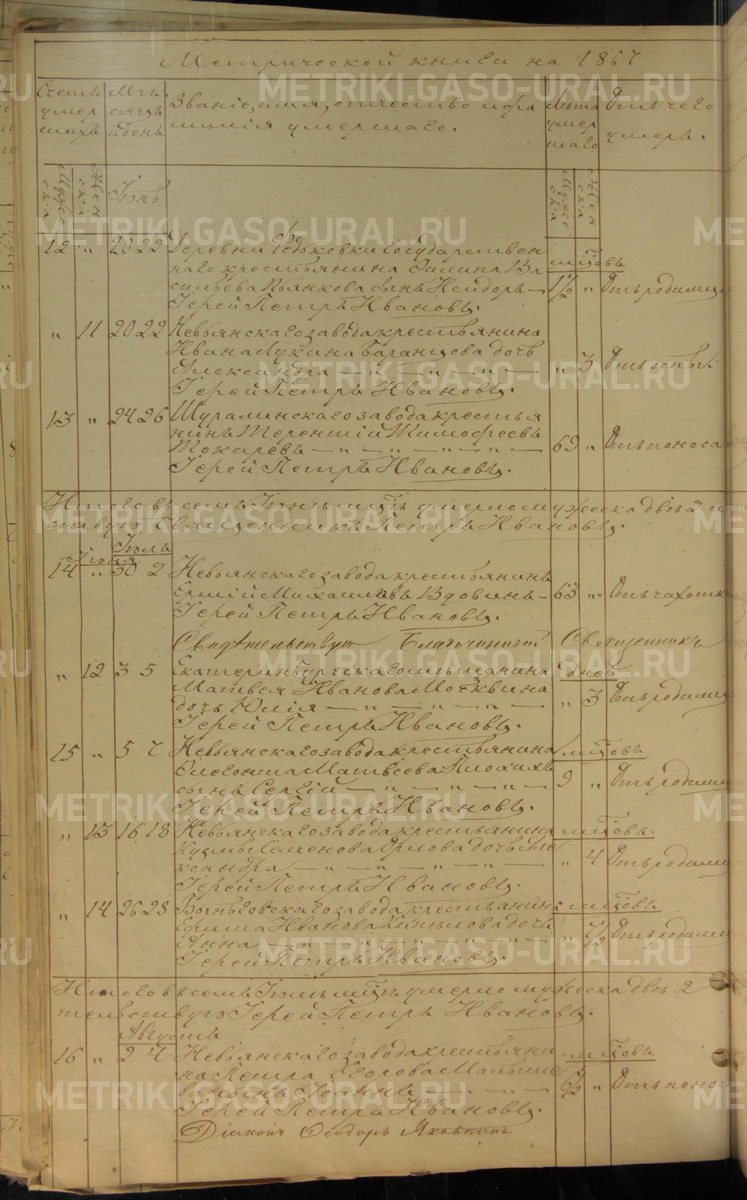 Метрической книги на 1867
Счетъ умершихъ
Мѣсяцъ и день
Званіе, имя, отчество и фамилія умершаго.
Лѣта умершаго
Отъ чего умеръ.
Мужеска
Женска
Іюнь
Мужеска
Женска
12 " 20 22 Деревни Государствен
мѣсцовъ
наго крестьянина Ва
1½ " Отъ родимца
сильева сынъ Нейдоръ —
Іерей Петръ Ивановъ.
" 11 20 22 Невьянскаго завода крестьянина
Ивана Лукина дочь
Александра — " — " — " — " 3 Отъ оспы.
Іерей Петръ Ивановъ.
13 " 24 26 Шуралинскаго завода крестья
нинъ Терентій Тимофеевъ
Токаревъ — " — " — " — 69 " Отъ поноса
Іерей Петръ Ивановъ.
Итого въ семъ Іюнѣ мѣсцѣ умерло мужеска двѣ 2 и
ствуютъ Священникъ Петръ Ивановъ.
Іюль
Іюня
14 " 30 2 Невьянскаго завода крестьянинъ
Михаиловъ Вдовинъ — 63 " Отъ чахотки
Іерей Петръ Ивановъ.
Свидѣтельствую Благочинный Священникъ
" 12 3 5 Екатеринбургскаго мѣщанина
дней
Матвея Иванова Москвина
дочь Юлія — " — " — " — " 3 Отъ родимца
Іерей Петръ Ивановъ.
15 " 5 7 Невьянскаго завода крестьянина
мѣсцовъ
Матвѣева Плохихъ
сынъ Сергій — " — " — " — 9 " Отъ родимца
Іерей Петръ Ивановъ.
" 13 16 18 Невьянскаго завода крестьянина
мѣсцовъ.
Кузмы Семенова Орлова дочь Але
ксандра — " — " — " — " 4 Отъ родимца
Іерей Петръ Ивановъ.
" 14 26 28 Быньговскаго завода крестьянина
мѣсцовъ
Ефима Иванова дочь
Анна " " " " " Отъ родимца
Іерей Петръ Ивановъ.
Итого въ семъ Іюлѣ мѣсцѣ умерло мужеска двѣ 2
тельствуютъ Іерей Петръ Ивановъ.
Августъ
16 " 2 4 Невьянскаго завода крестьяни
мѣсцовъ
на Петра Егорова Малыше
6½ " Отъ поноса
ва сынъ — " —
Іерей Петръ Ивановъ.
Діаконъ Ѳеодоръ
METRIKI.GASO-URAL.RU